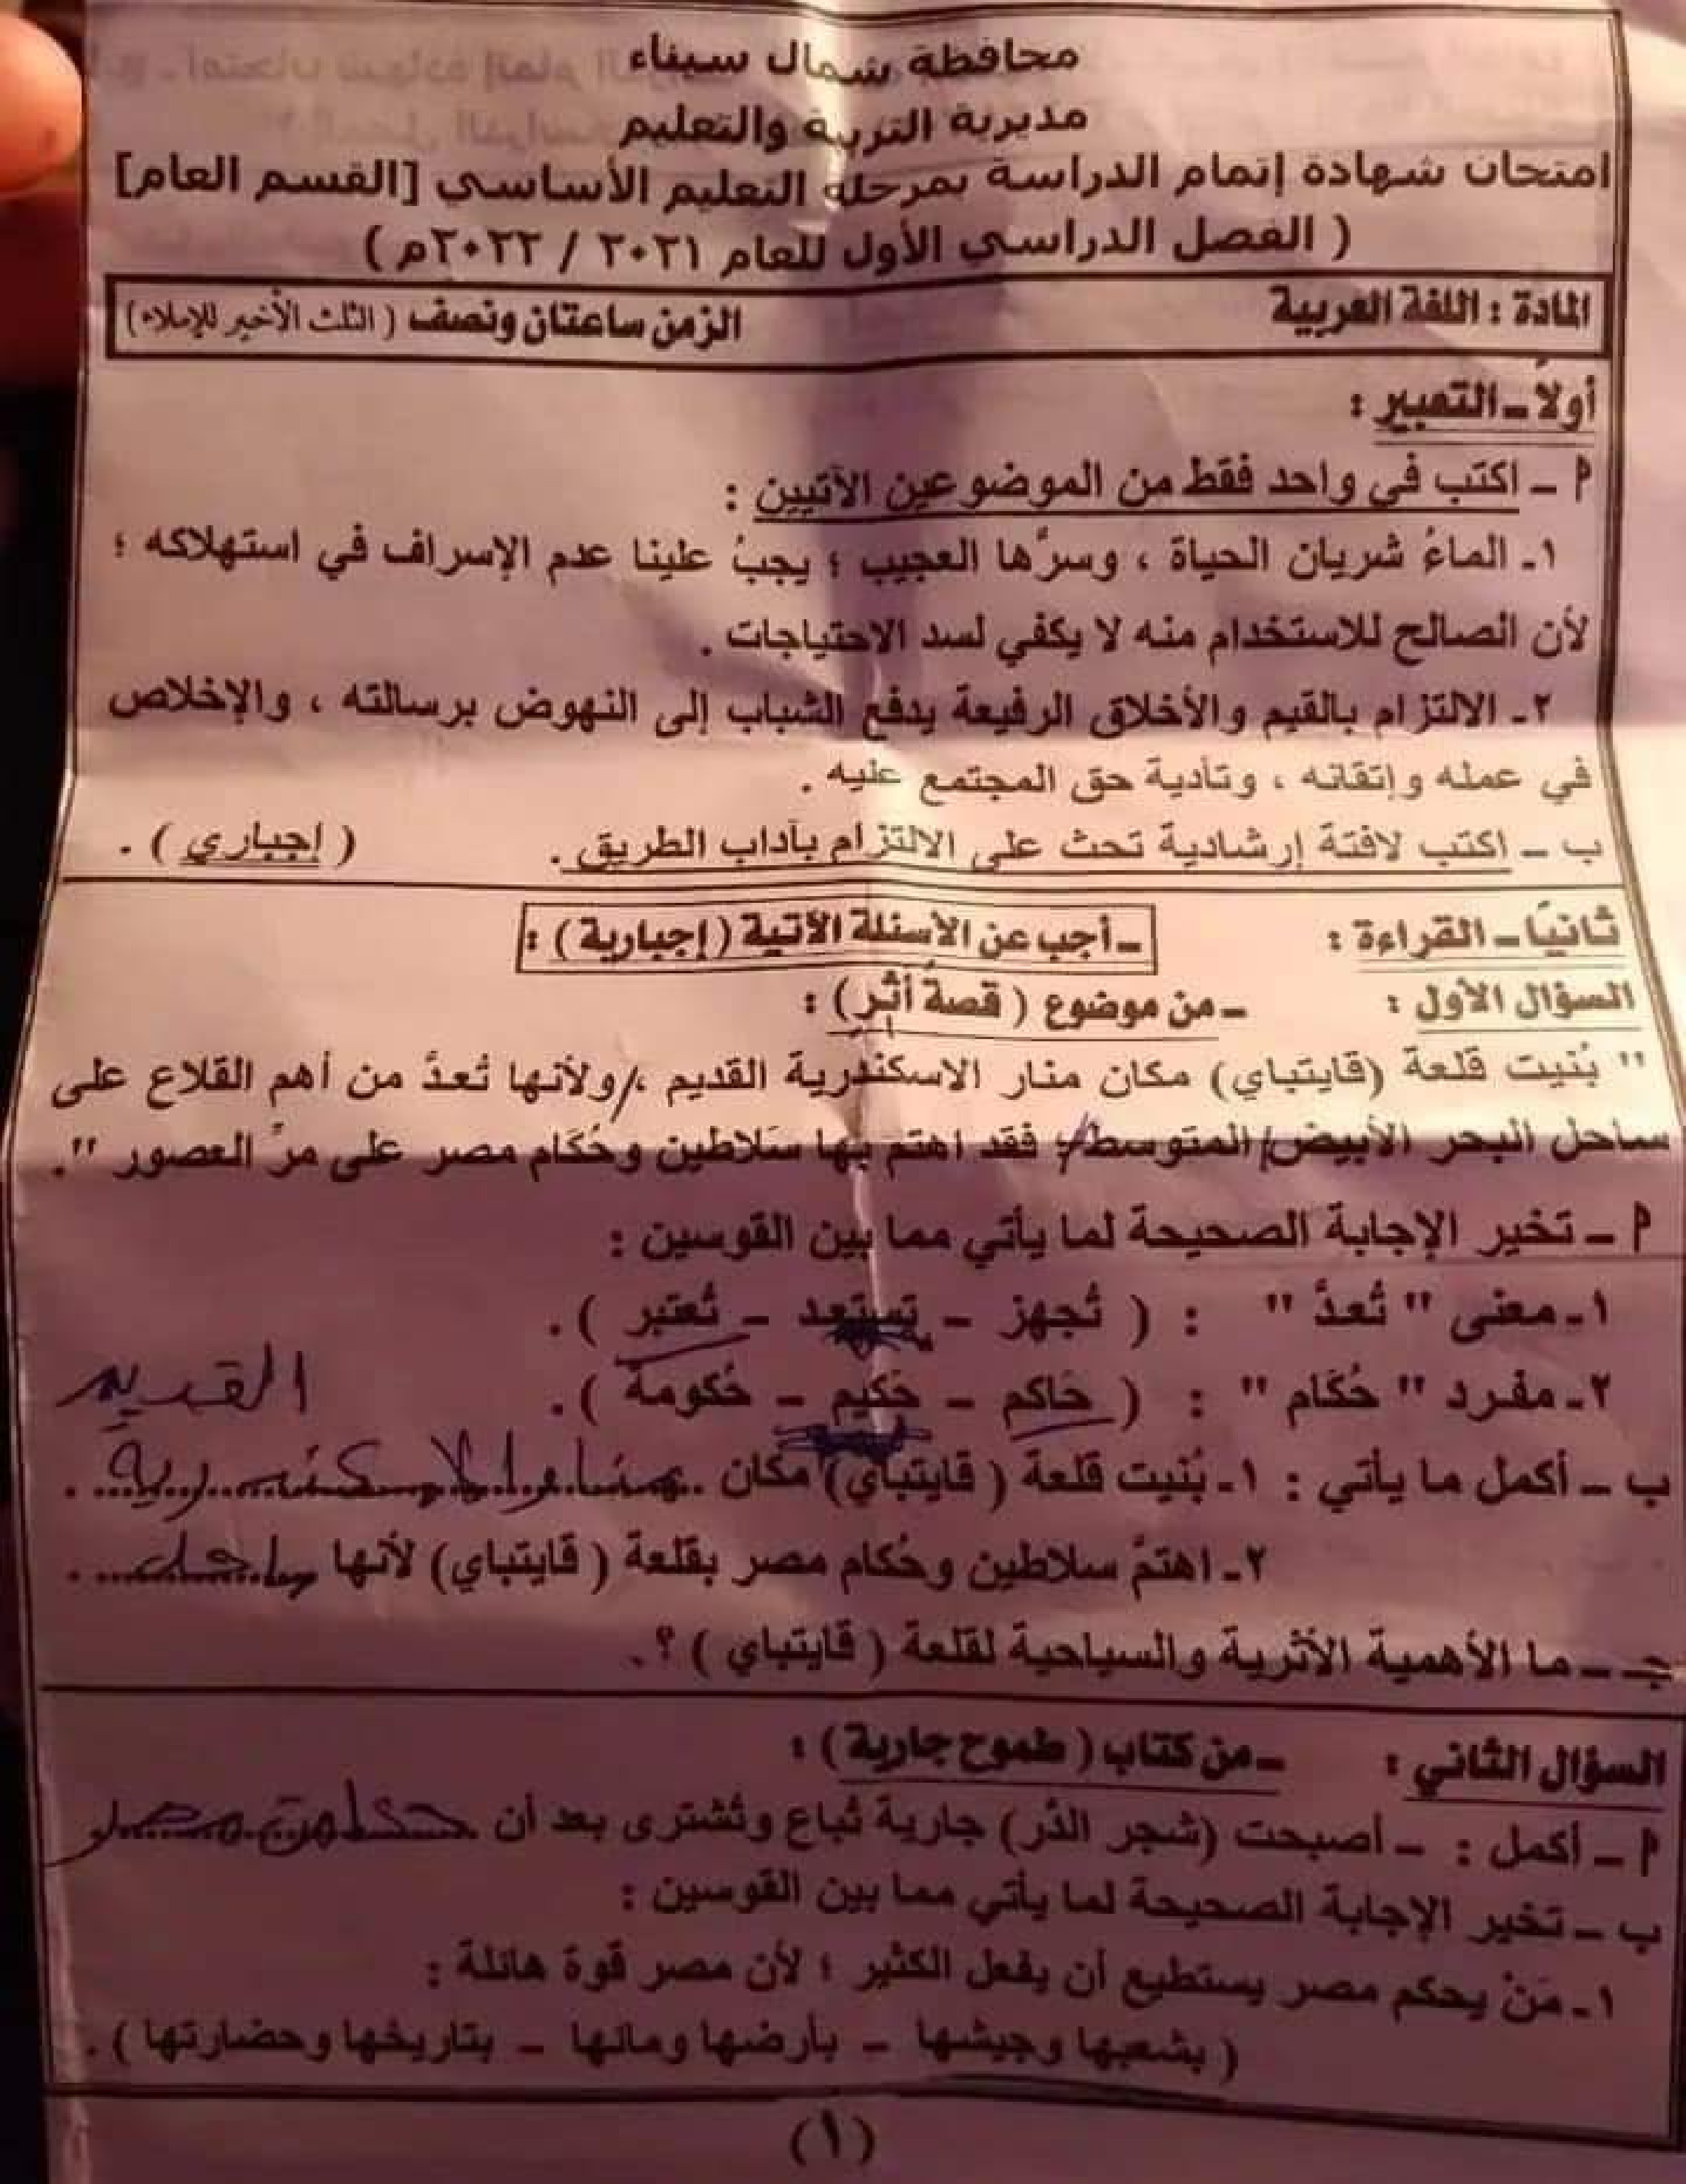 محافظة شمال سيناء
مديرية التربية والتعليم
امتحان شهادة إتمام الدراسة بمرحلة التعليم الأساسي [القسم العام]
( الفصل الدراسي الأول للعام ٢٠٢١ / ٢٠٢٢م )
المادة : اللغة العربية الزمن ساعتان ونصف ( الثلث الأخير للإملاء )
أولاً ـ التعبير :
أ ـ اكتب في واحد فقط من الموضوعين الآتيين :
١ـ الماءُ شريان الحياة ، وسرُّها العجيب ؛ يجبُ علينا عدم الإسراف في استهلاكه ؛
لأن الصالح للاستخدام منه لا يكفي لسد الاحتياجات .
٢ـ الالتزام بالقيم والأخلاق الرفيعة يدفع الشباب إلى النهوض برسالته ، والإخلاص
في عمله وإتقانه ، وتأدية حق المجتمع عليه .
ب ـ اكتب لافتة إرشادية تحث على الالتزام بآداب الطريق . ( إجباري ) .
ثانيًا ـ القراءة : ـ أجب عن الأسئلة الآتية ( إجبارية ) :
السؤال الأول : ـ من موضوع ( قصة أثر ) :
" بُنيت قلعة (قايتباي) مكان منار الاسكندرية القديم ، ولأنها تُعدَّ من أهم القلاع على
ساحل البحر الأبيض المتوسط ؛ فقد اهتم بها سلاطين وحُكَام مصر على مرّ العصور ".
أ ـ تخير الإجابة الصحيحة لما يأتي مما بين القوسين :
١ـ معنى " تُعدَّ " : ( تُجهز – تستعد – تُعتبر ) .
٢ـ مفرد " حُكَام " : ( حَاكم – حَكيم – حُكومة ) .
القديم
ب ـ أكمل ما يأتي : ١ـ بُنيت قلعة ( قايتباي) مكان منار الاسكندرية .
٢ـ اهتمَّ سلاطين وحُكام مصر بقلعة ( قايتباي) لأنها ساحل .
جـ ـ ما الأهمية الأثرية والسياحية لقلعة ( قايتباي ) ؟ .
السؤال الثاني : ـ من كتاب ( طموح جارية ) :
أ ـ أكمل : ـ أصبحت (شجر الدُر) جارية تُباع وتُشترى بعد أن حكامن مصر
ب ـ تخير الإجابة الصحيحة لما يأتي مما بين القوسين :
١ـ مَنْ يحكم مصر يستطيع أن يفعل الكثير ؛ لأن مصر قوة هائلة :
( بشعبها وجيشها – بأرضها ومائها – بتاريخها وحضارتها ) .
(١)